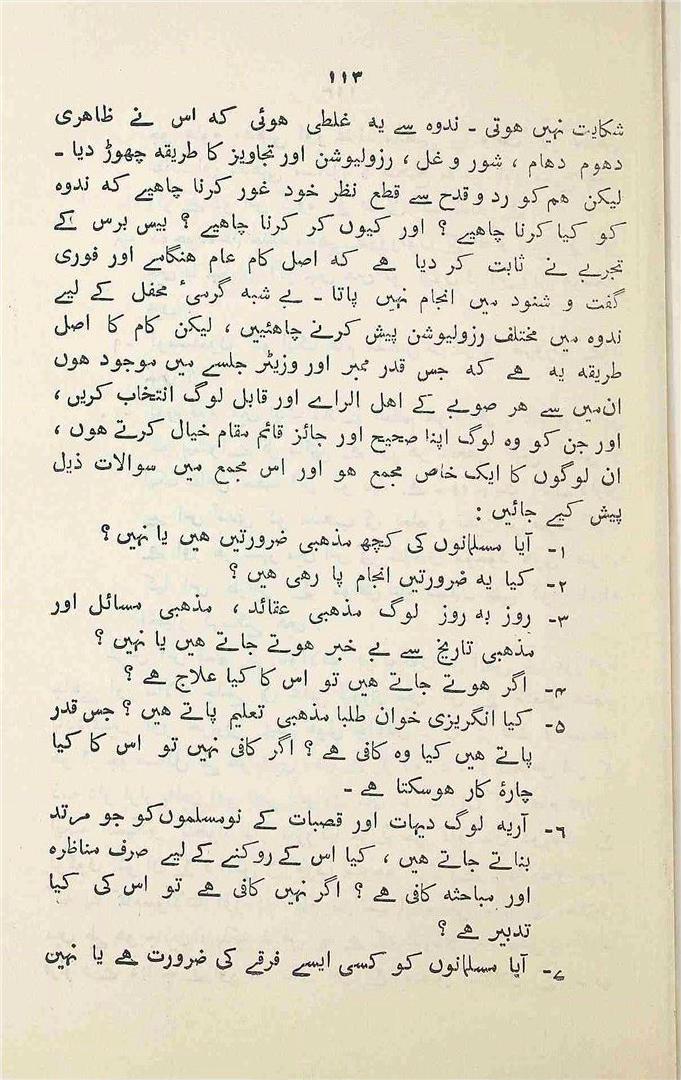 ۱۱۳
شکایت نہیں ہوتی ۔ ندوہ سے یہ غلطی ہوئی کہ اس نے ظاہری
دھوم دھام ، شور و غل ، رزولیوشن اور تجاویز کا طریقہ چھوڑ دیا ۔
لیکن ہم کو رد و قدح سے قطع نظر خود غور کرنا چاہیے کہ ندوہ
کو کیا کرنا چاہیے ؟ اور کیوں کر کرنا چاہیے ؟ بیس برس کے
تجربے نے ثابت کر دیا ہے کہ اصل کام عام ہنگامے اور فوری
گفت و شنود میں انجام نہیں پاتا ۔ بے شبہ گرمیٔ محفل کے لیے
ندوہ میں مختلف رزولیوشن پیش کرنے چاہئیں ، لیکن کام کا اصل
طریقہ یہ ہے کہ جس قدر ممبر اور وزیٹر جلسے میں موجود ہوں
ان میں سے ہر صوبے کے اہل الراے اور قابل لوگ انتخاب کریں ،
اور جن کو وہ لوگ اپنا صحیح اور جائز قائم مقام خیال کرتے ہوں ،
ان لوگوں کا ایک خاص مجمع ہو اور اس مجمع میں سوالات ذیل
پیش کیے جائیں :
۱- آیا مسلمانوں کی کچھ مذہبی ضرورتیں ہیں یا نہیں ؟
۲- کیا یہ ضرورتیں انجام پا رہی ہیں ؟
۳- روز بہ روز لوگ مذہبی عقائد ، مذہبی مسائل اور
مذہبی تاریخ سے بے خبر ہوتے جاتے ہیں یا نہیں ؟
۴- اگر ہوتے جاتے ہیں تو اس کا کیا علاج ہے ؟
۵- کیا انگریزی خوان طلبا مذہبی تعلیم پاتے ہیں ؟ جس قدر
پاتے ہیں کیا وہ کافی ہے ؟ اگر کافی نہیں تو اس کا کیا
چارۂ کار ہوسکتا ہے ۔
۶- آریہ لوگ دیہات اور قصبات کے نومسلموں کو جو مرتد
بناتے جاتے ہیں ، کیا اس کے روکنے کے لیے صرف مناظرہ
اور مباحثہ کافی ہے ؟ اگر نہیں کافی ہے تو اس کی کیا
تدبیر ہے ؟
۷- آیا مسلمانوں کو کسی ایسے فرقے کی ضرورت ہے یا نہیں